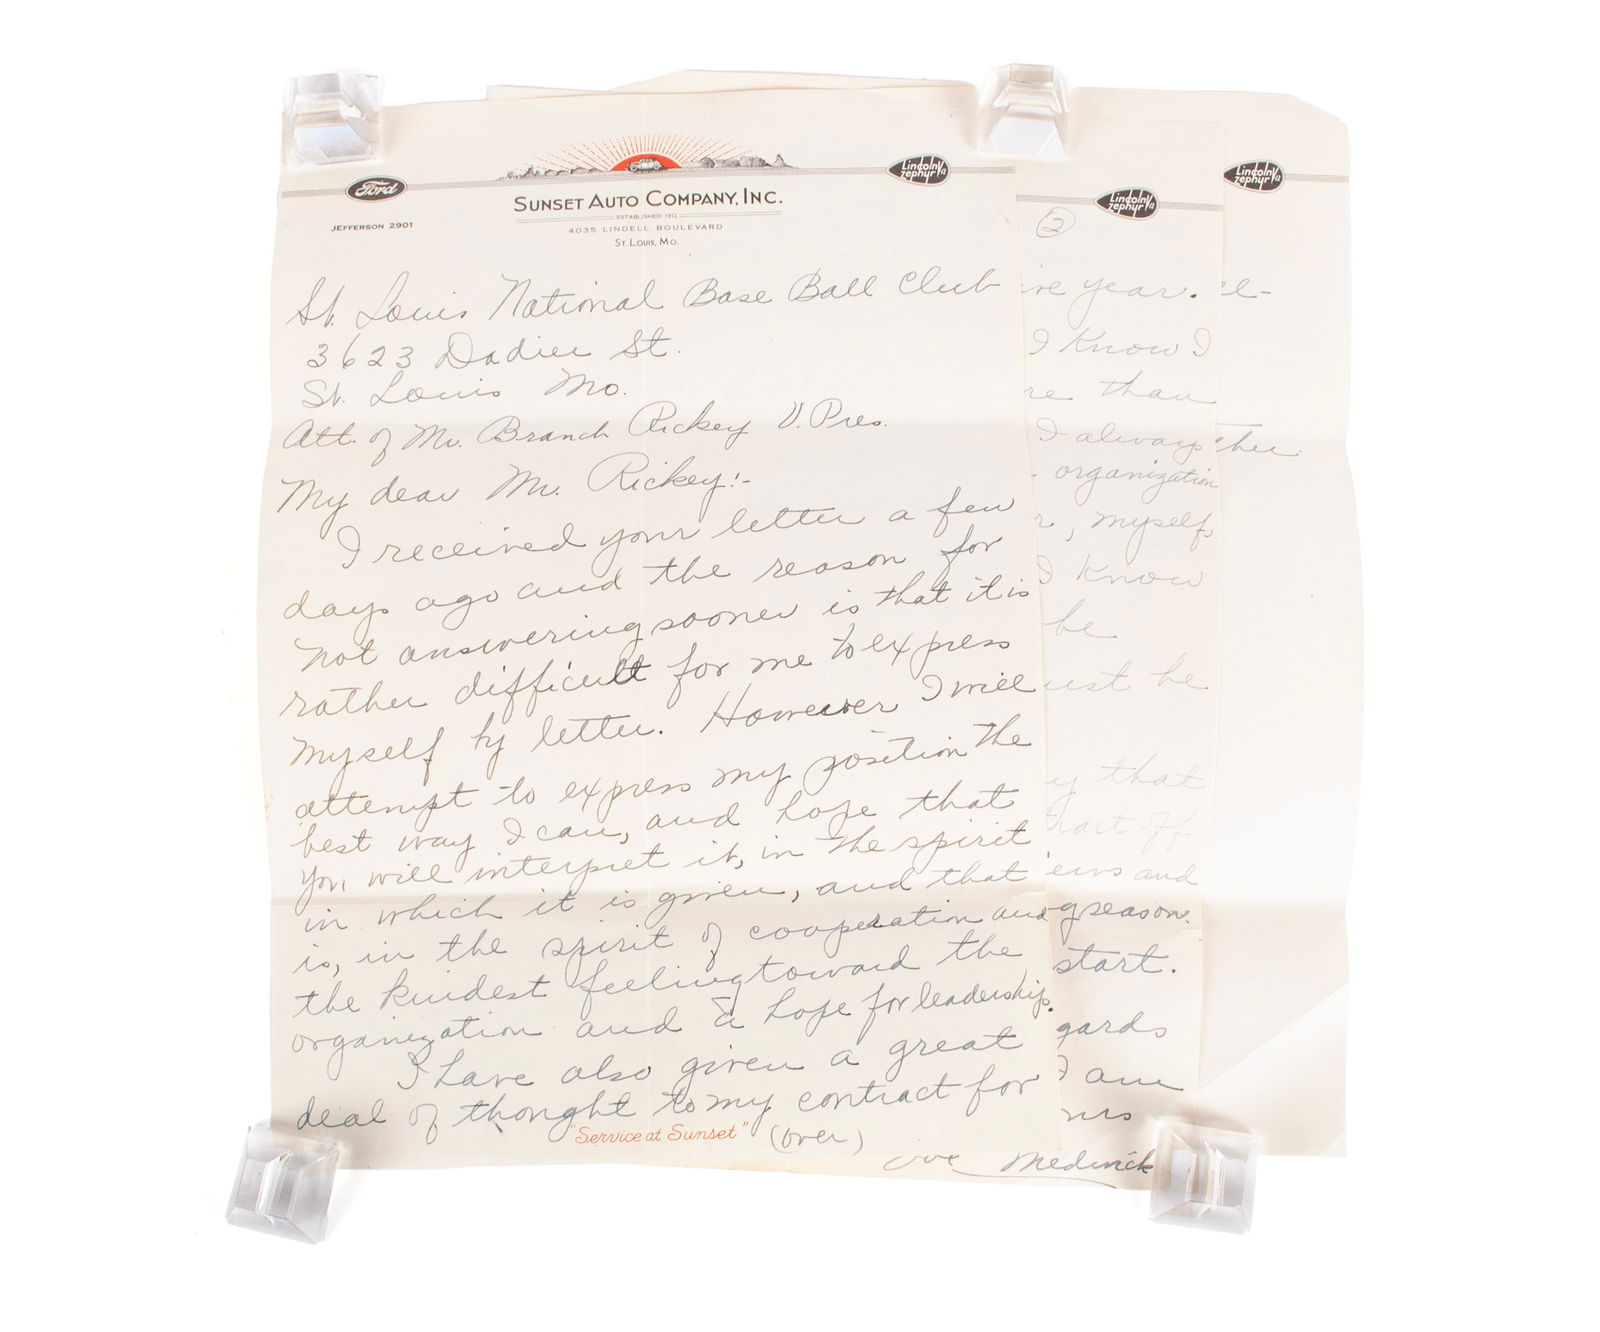 Ford
JEFFERSON 2901
SUNSET AUTO COMPANY, INC.
ESTABLISHED 1912
4035 LINDELL BOULEVARD
ST. LOUIS, MO.
Lincoln Zephyr V12
St. Louis National Base Ball Club
3623 Dodier St.
St. Louis Mo.
Att. of Mr. Branch Rickey V. Pres.
My dear Mr. Rickey:-
I received your letter a few
days ago and the reason for
not answering sooner is that it is
rather difficult for me to express
myself by letter. However I will
attempt to express my position the
best way I can, and hope that
you will interpret it, in the spirit
in which it is given, and that
is, in the spirit of cooperation and
the kindest feeling toward the
organization and a hope for leadership.
I have also given a great
deal of thought to my contract for
"Service at Sunset"
(over)
Lincoln Zephyr V12
2
year.
I know I
than
I always
organization
, myself,
I know
be
be
that
and
season.
start.
I am
Joe Medwick
Lincoln Zephyr V12